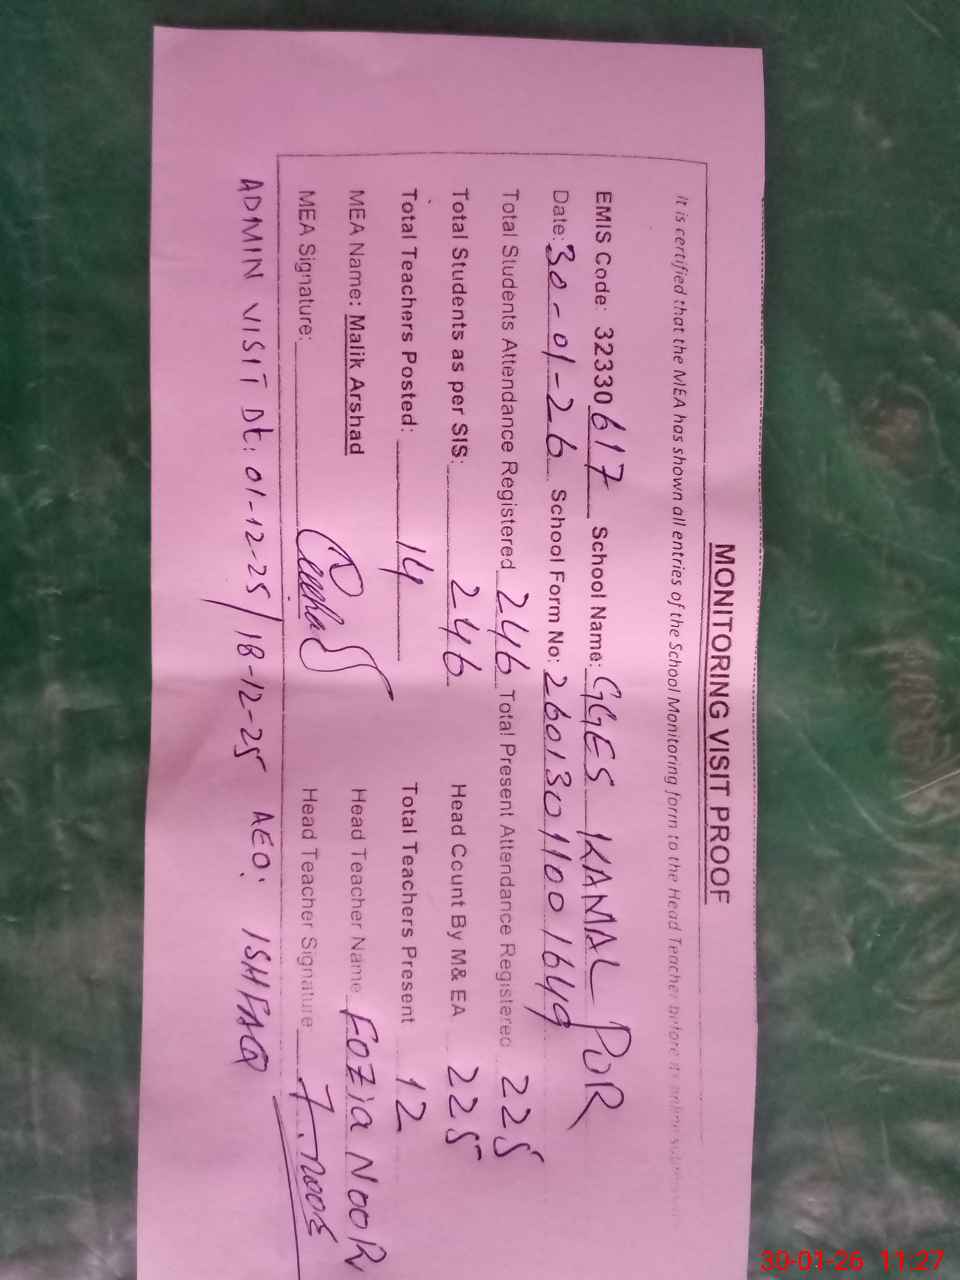 MONITORING VISIT PROOF
It is certified that the MEA has shown all entries of the School Monitoring form to the Head Teacher before its online
EMIS Code: 32330617 School Name: GGES KAMAL POR
Date: 30-01-26 School Form No: 26013011001649
Total Students Attendance Registered 246 Total Present Attendance Registered 225
Total Students as per SIS: 246 Head Count By M& EA 225
Total Teachers Posted: 14 Total Teachers Present 12
MEA Name: Malik Arshad Head Teacher Name FOZIA NOOR
MEA Signature: Head Teacher Signature F.noor
ADMIN VISIT Dt: 01-12-25/18-12-25 AEO: ISHFAQ
30-01-26 11:27